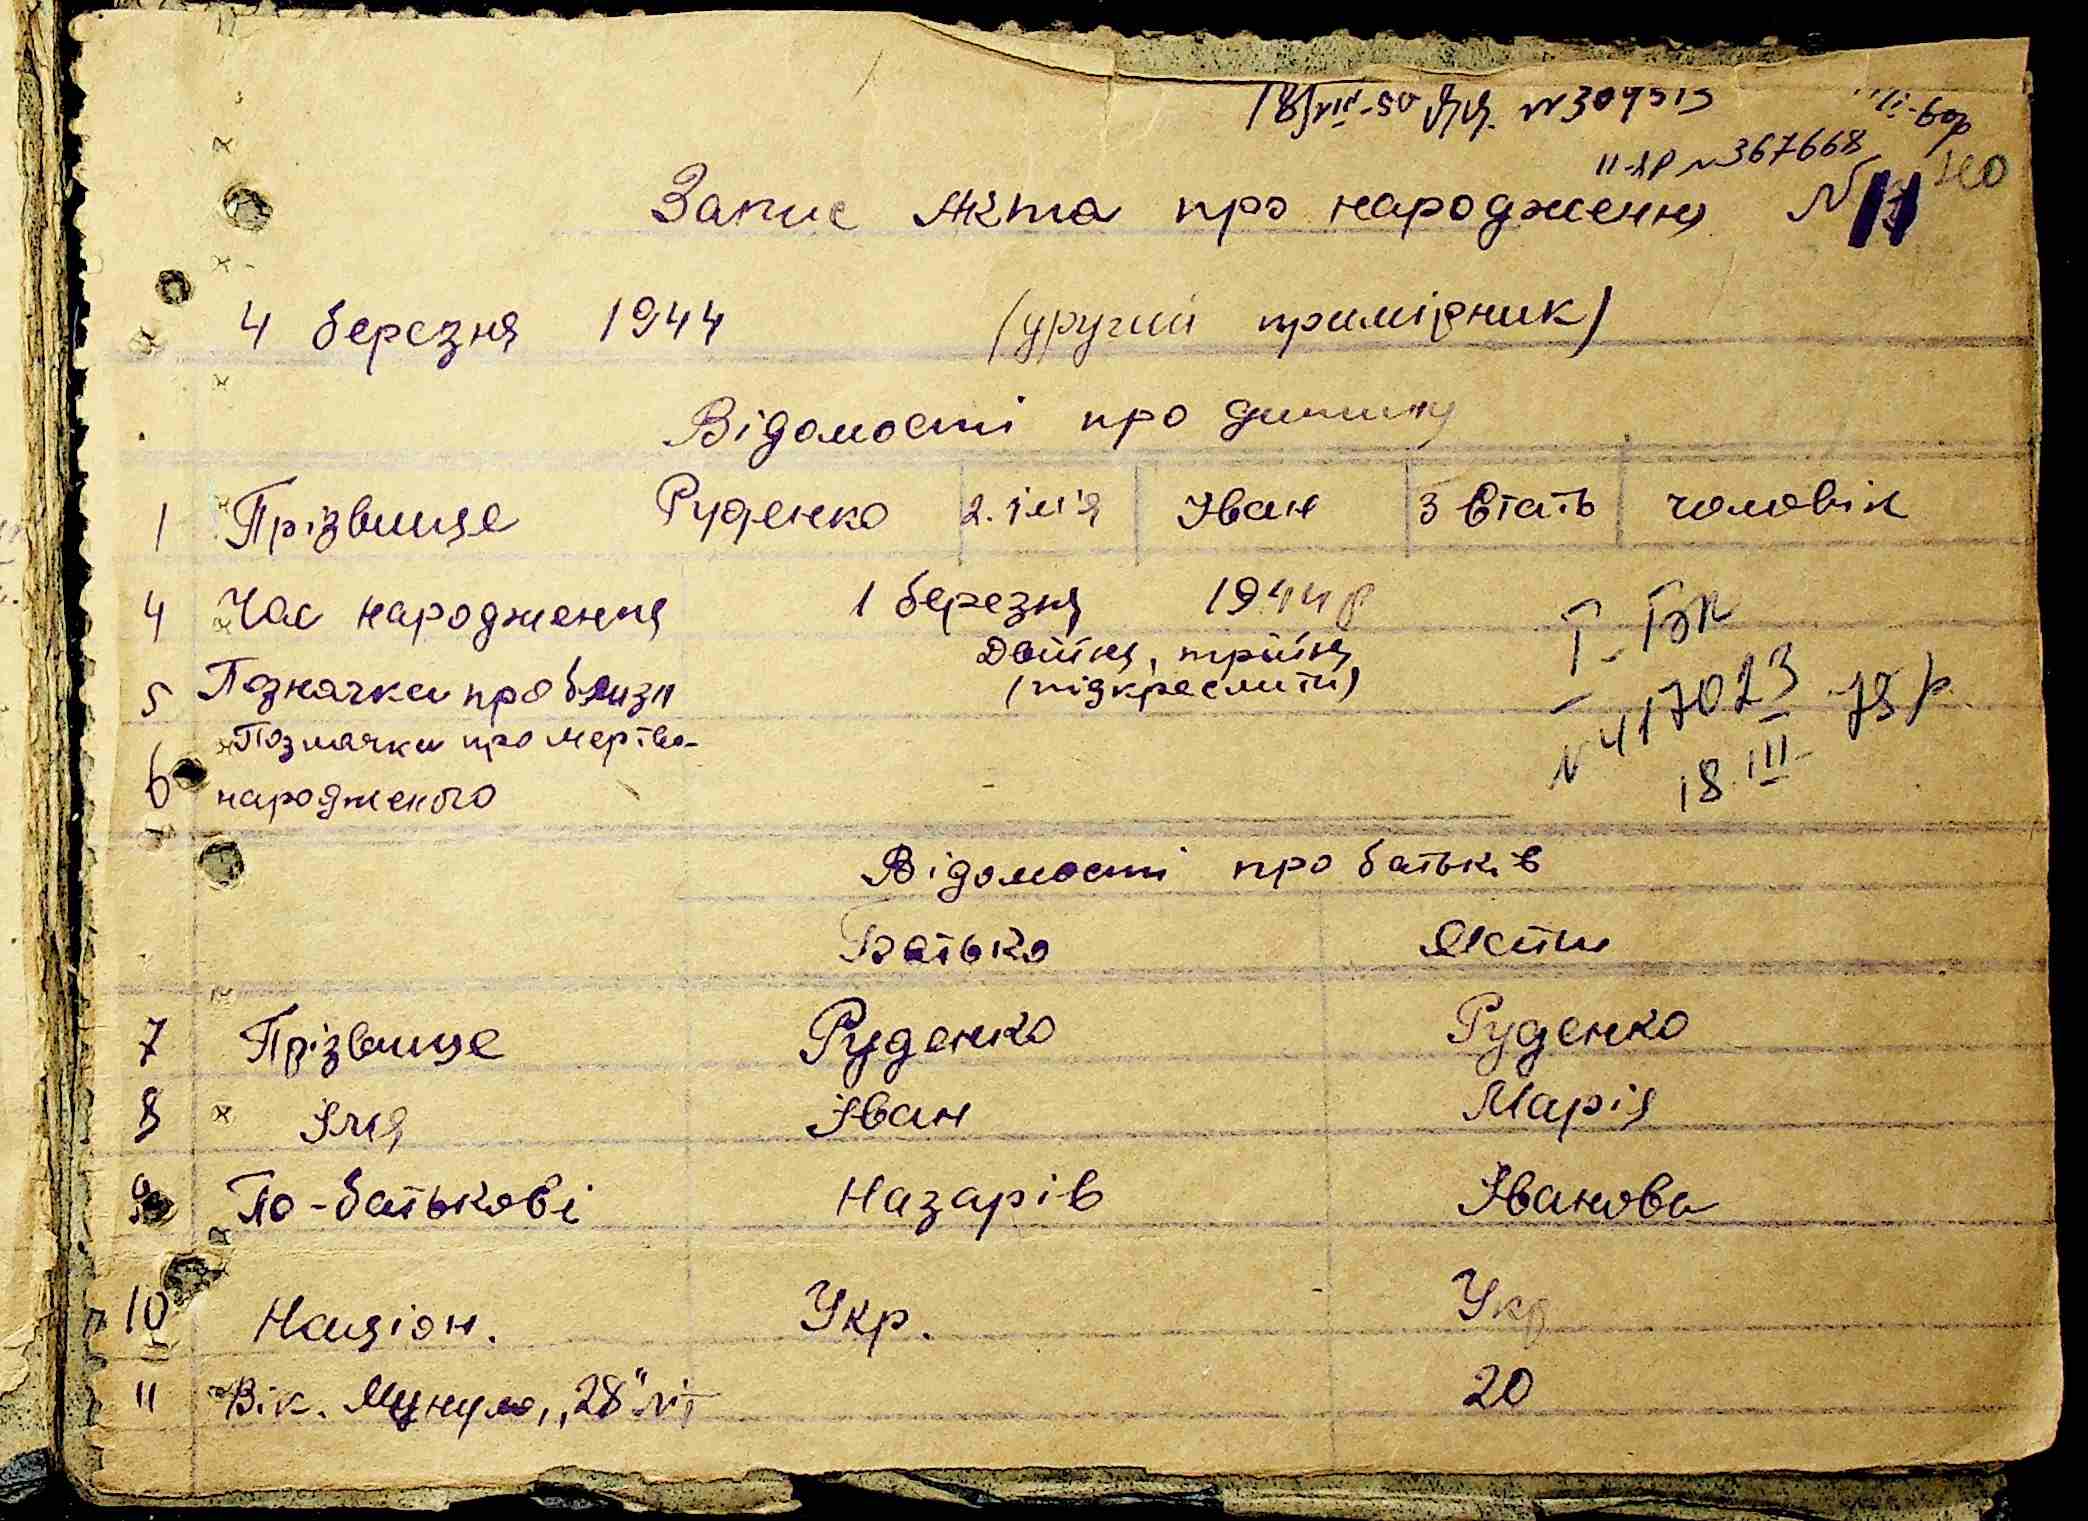 № 304515
№ 367668
Запис Акта про народження №
4 березня 1944 (другий примірник)
Відомості про дитину
1 Прізвище Руденко 2. імʼя Іван 3 Стать чоловік
4 Час народження 1 березня 1944 р
5 Позначки про близн Двійня, трійня
(підкреслити)
6 Позначки про мертво-
народженого
№ 417023 -75 р.
18.III-
Відомості про батьків
Батько Мати
7 Прізвище Руденко Руденко
8 Імя Іван Марія
9 По-батькові Назарів Іванова
10 Націон. Укр. Укр
11 Вік. Минуло „28" літ 20